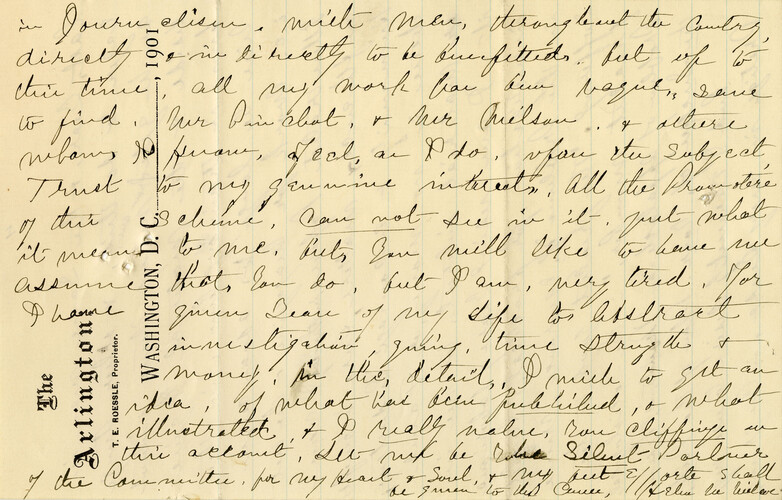 in Journalism. with men, throughout the Country,
directly or indirectly to be benefitted. but up to
this time, all my work has been vague, save
to find, Mr Pinchot, & Mr Nelson, & others
whom I know, feel, as I do, upon the Subject,
Trust to my genuine interests, All the Promoters
of this Scheme, can not see in it, just what
it means to me, but, you will like to have me
assume that, you do, but I am, very tired, For
I have given years of my Life to Abstract
investigation, giving, time strength &
money, in this, detail, I wish to get an
idea, of what has been Published, & what
illustrated, & I really value, your clippings on
this account, Let me be the Silent Partner
of the Committee, for my Heart & Soul, & my best Efforts shall
be given to this Cause,
The
Arlington
T. E. ROESSLE, Proprietor.
WASHINGTON, D. C. 1901